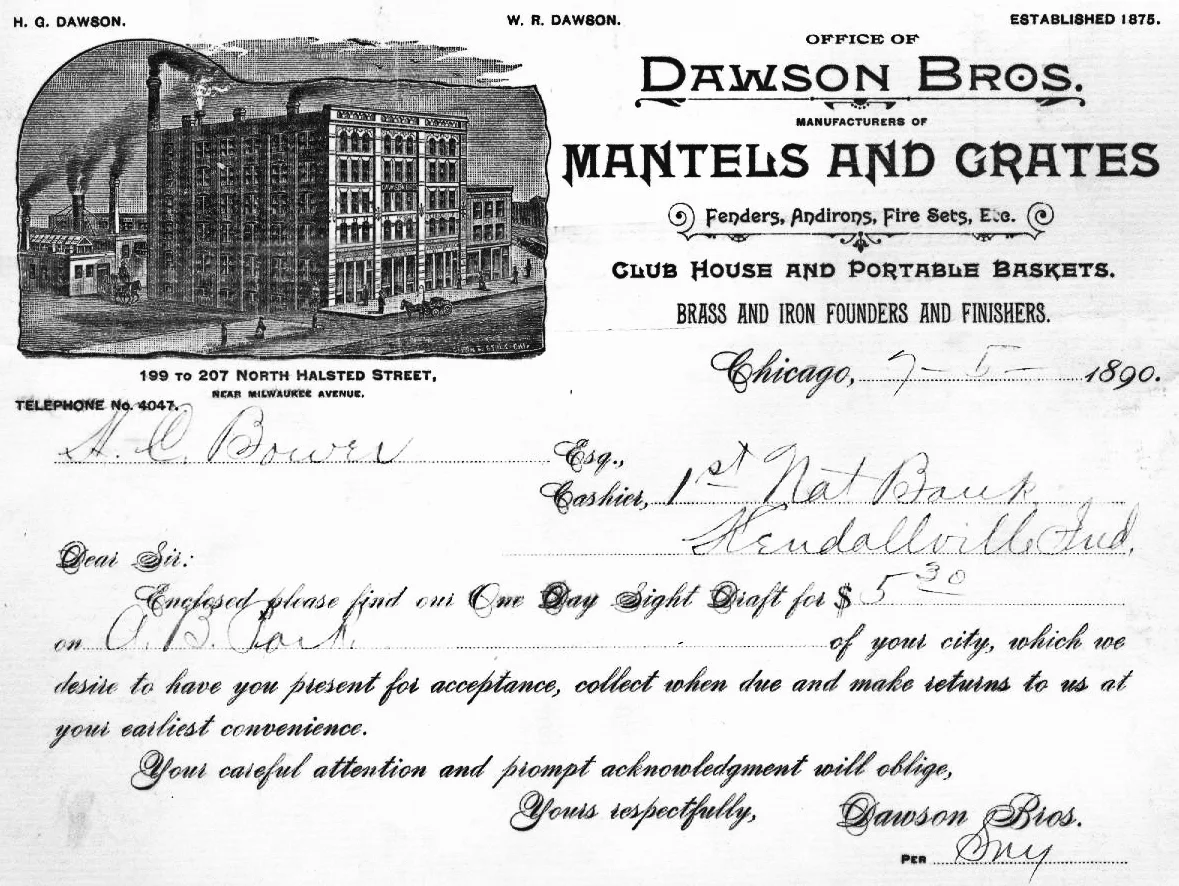 H. G. DAWSON. W. R. DAWSON. ESTABLISHED 1875.
OFFICE OF
DAWSON BROS.
MANUFACTURERS OF
MANTELS AND GRATES
Fenders, Andirons, Fire Sets, Etc.
CLUB HOUSE AND PORTABLE BASKETS.
BRASS AND IRON FOUNDERS AND FINISHERS.
DAWSON BROS
199 TO 207 NORTH HALSTED STREET,
NEAR MILWAUKEE AVENUE.
TELEPHONE No. 4047.
Chicago, 7-5- 1890.
H. C. Bower Esq.,
Cashier, 1st Nat Bank
Kendallville Ind.
Dear Sir:
Enclosed please find our One Day Sight Draft for $ 5 30
on A. B. Park of your city, which we
desire to have you present for acceptance, collect when due and make returns to us at
your earliest convenience.
Your careful attention and prompt acknowledgment will oblige,
Yours respectfully, Dawson Bros.
PER